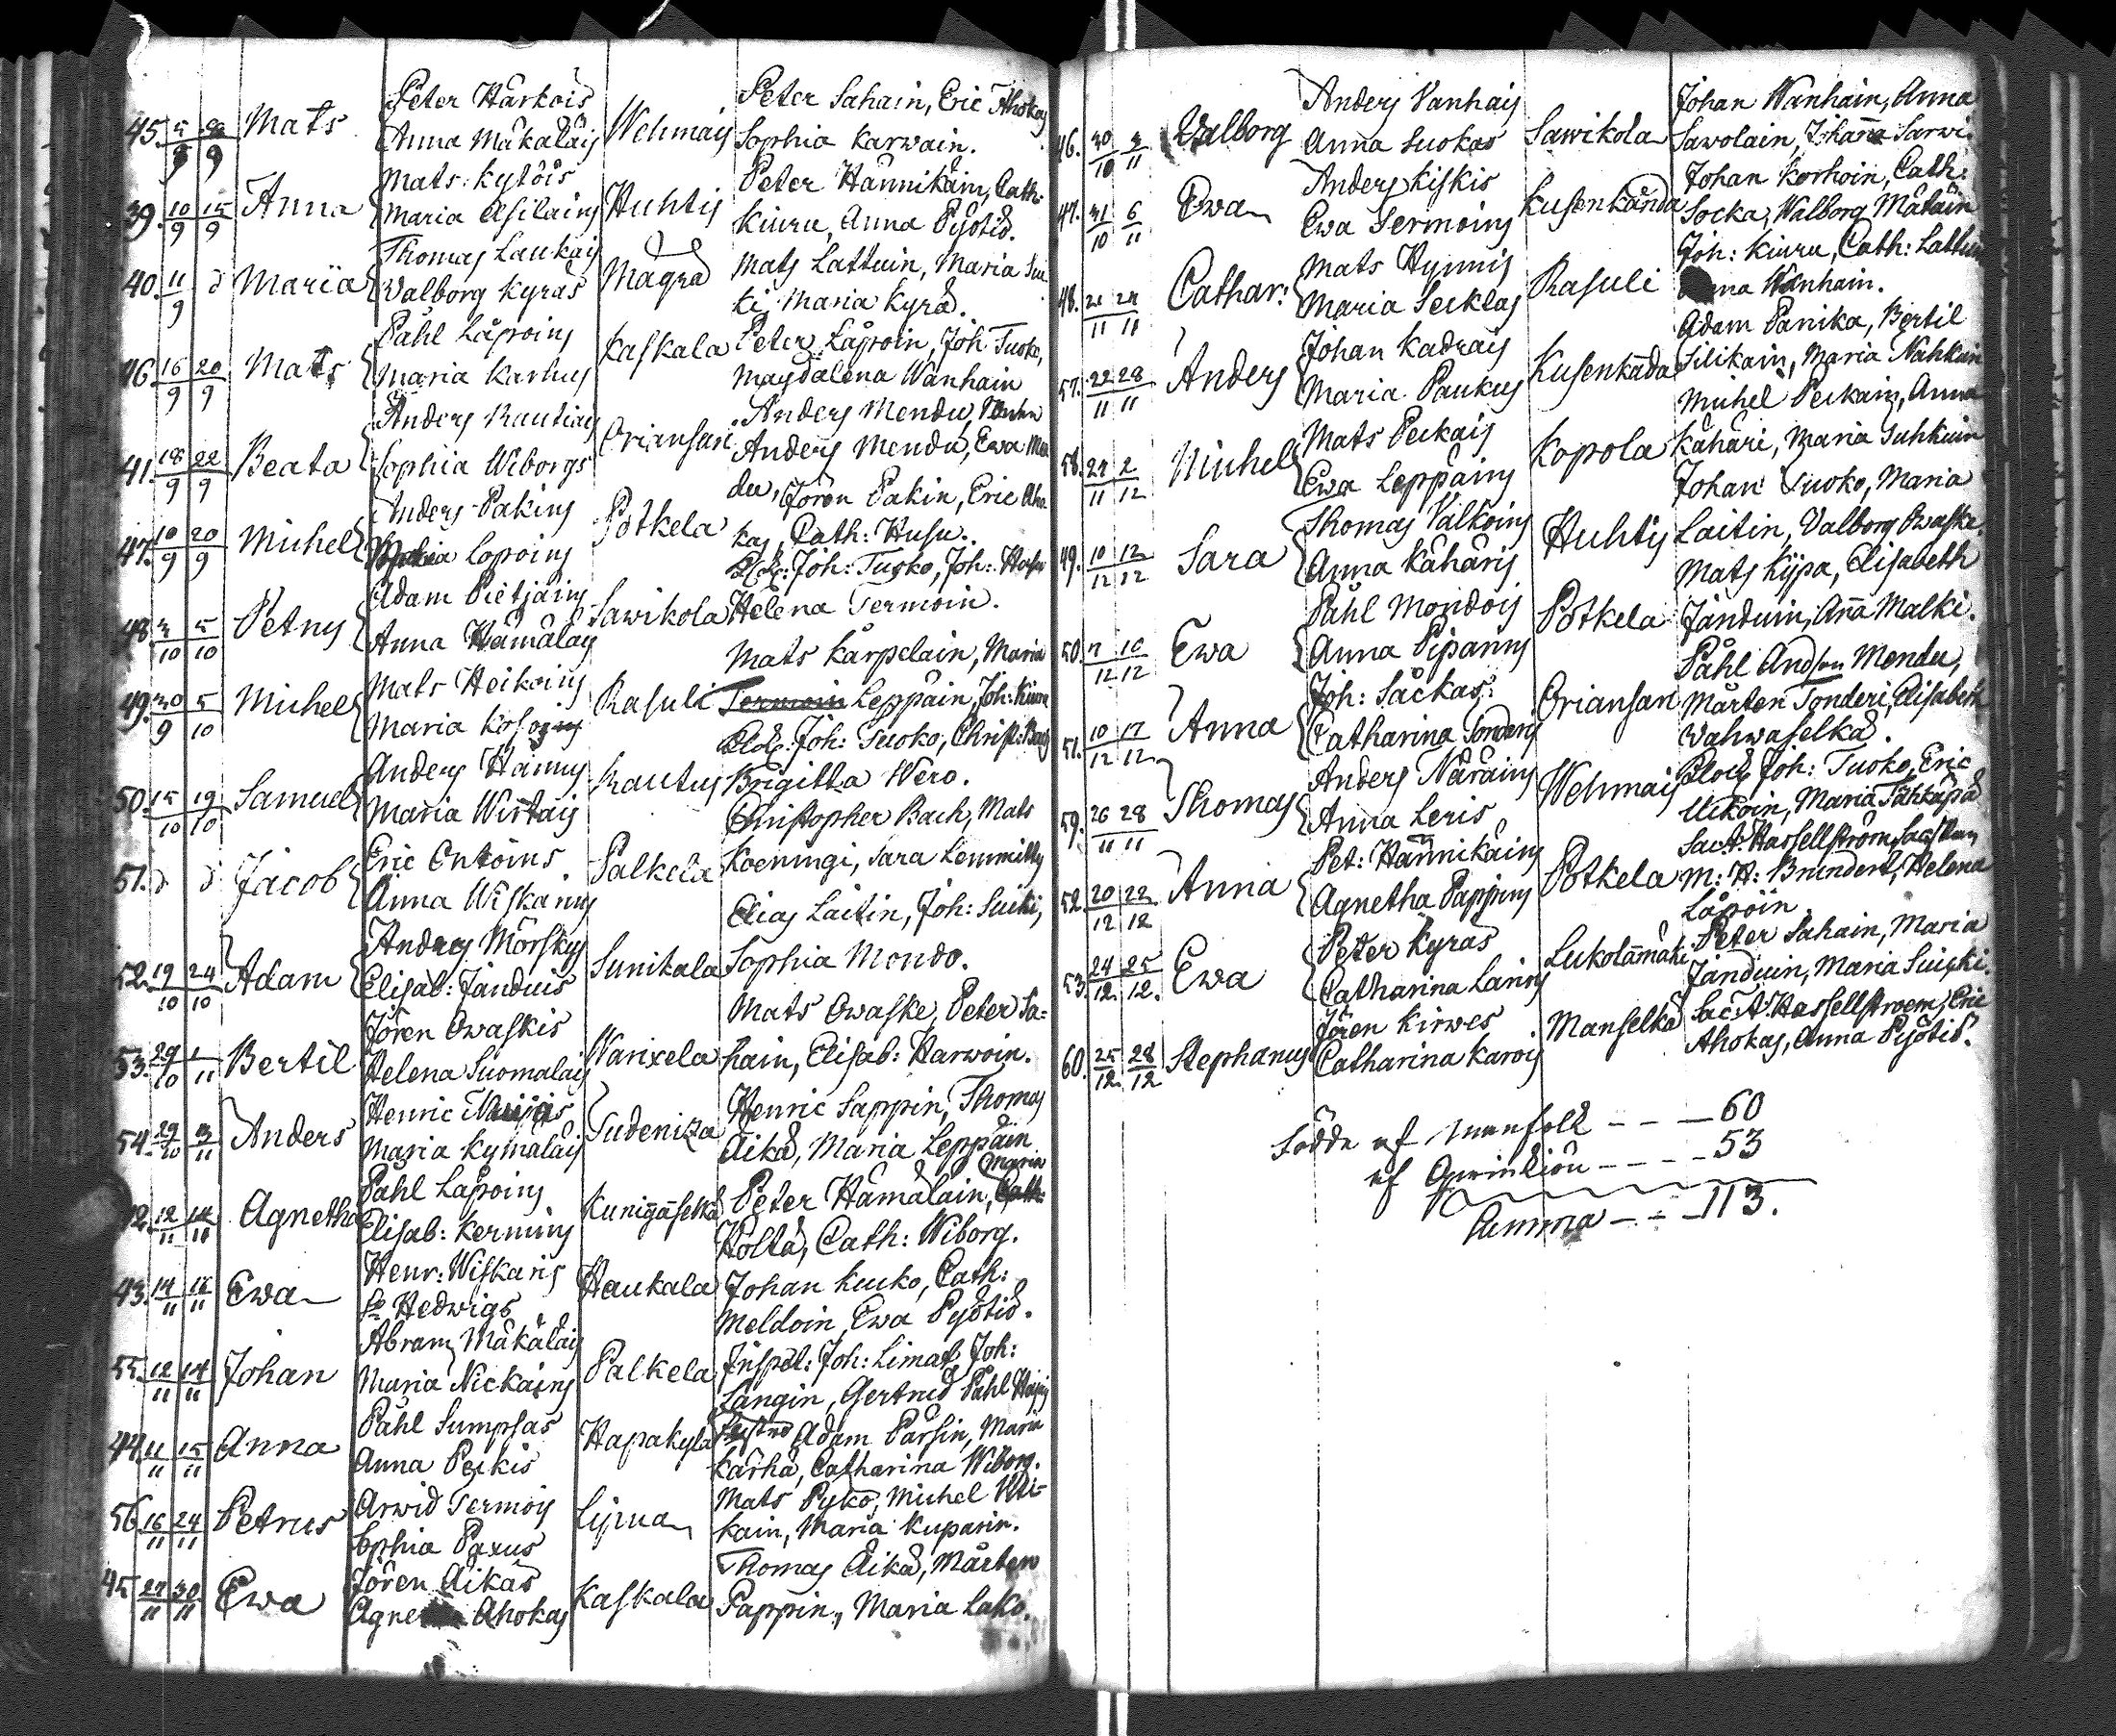 45. 5/9 8/9 Mats Peter Härkois Anna Mäkäläis Wehmais Peter Sahain, Eric Ahokas
Sophia Karwain.
39. 10/9 15/9 Anna Mats Kytöis Maria Asilains Huhtis Peter Hännikäin, Cath:
Kiuru, Anna Pyötid.
40. 11/9 d Maria Thomas Laukais Walborg Kyräs Mägrä Mats Lattuin, Maria Sui-
ki, Maria Kyrä.
46. 16/9 20/9 Mats Påhl Läpoins Maria Karhus Kaskala Peter Läpoin, Joh: Tusko,
Magdalena Wanhain
41. 18/9 22/9 Beata Anders Rautiais Sophia Wiborgs Oriansari Anders Mendu,
Anders Mendu, Ewa Men
du,
47. 10/9 20/9 Michel Anders Pakins Lopoins Potkela Jören Pakin, Eric Aho-
kas, Cath: Husu.
48. 3/10 5/10 Petrus Adam Pietjäins Anna Hämäläs Sawikola Klock: Joh: Tusko, Joh: Husu
Helena Termoin.
49. 30/9 5/10 Michel Mats Heikoins Maria Kosoins Rasuli Mats Kärpelain, Maria
Termoin Leppäin, Joh: Kiuru
50. 15/10 19/10 Samuel Anders Hännys Maria Wirtais Rautus Klock: Joh: Tuoko, Christ: Bach
Brigitta Wero.
51. d d Jacob Eric Ontoins Anna Wiskarins Palkela Christopher Bach, Mats
Koeningi, Sara Lemmitty
52. 19/10 24/10 Adam Anders Mörskys Elisab: Jänduis Sunikala Elias Laitin, Joh: Suiki,
Sophia Mondo.
53. 29/10 1/11 Bertil Jören Owaskis Helena Suomalais Warixela Mats Owaske, Peter Sa=
hain, Elisab: Harwoin.
54. 29/10 3/11 Anders Henric Maria Kymäläis Sudenixa Henric Sappin, Thomas
Äikä, Maria Leppäin
42. 12/11 14/11 Agnetha Påhl Läpoins Elisab: Kermins Kunigasselkä Peter Hämäläin, Maria
Holta, Cath: Wiborg.
43. 14/11 16/11 Ewa Henr: Wiskaris Hedwigs Haukala Johan Kuko, Cath:
Meldoin, Ewa Pyötid.
55. 12/11 14/11 Johan Abram Mäkäläis Maria Nickäins Palkela Inspet: Joh: Limat, Joh:
Längin, Gertrud Påhl
44. 11/11 15/11 Anna Påhl Sumpsas Anna Peikis Hapakylä Adam Pärsin, Maria
Kärhä, Catharina Wiborg.
56. 16/11 24/11 Petrus Arwid Termois Sophia Paxus Lipua Mats Pykö, Michel
kain, Maria Kuparin.
45. 27/11 30/11 Ewa Jören Äikäs Ahokas Kaskala Thomas Äikä, Mårten
Pappin, Maria Lako.
46. 30/10 3/11 Valborg Anders Vanhais Anna Suokas Sawikola Johan Wanhain, Anna
Sawolain, Johanna Sarwi.
47. 31/10 6/11 Ewa Anders Kiskis Ewa Termoins Kusenkända Johan Korhoin, Cath:
Socka, Walborg Mätäin
48. 21/11 24/11 Cathar: Mats Hynnis Maria Secklas Rasuli Joh: Kiuru, Cath: Lattuin
Wanhain.
57. 22/11 28/11 Anders Johan Kadrais Maria Paukus Kusenkada Adam Panika, Bertil
Silikain, Maria Nahkain
58. 24/11 2/12 Michel Mats Peikais Ewa Leppäins Kopola Michel Peikain, Anna
Kähäri, Maria Suhkuin
49. 10/12 12/12 Sara Thomas Valkoins Anna Kähäris Huhtis Johan Suoko, Maria
Laitin, Valborg Owaske.
50. 7/12 10/12 Ewa Påhl Mondois Anna Piparins Potkela Mats Kypa, Elisabeth
Jänduin, Anna Malki.
51. 10/12 17/12 Anna Joh: Säckas Catharina Tonders Oriansari Påhl Andson Mendu,
Mårten Tonderi, Elisabeth
Wahwaselkä.
59. 26/11 28/11 Thomas Anders Näräins Anna Leris Wehmais Klock: Joh: Tuoko, Eric
Ukoin, Maria Tähkäpä
52. 20/12 22/12 Anna Pet: Hännikäins Agnetha Pappins Potkela Sac: A: Hassellström,
M: H: Brundert, Helena
Läpoin.
53. 24/12 25/12. Ewa Peter Kyräs Catharina Länns Lukolamäki Peter Sahain, Maria
Jänduin, Maria Suicki.
60. 25/12 28/12 Stephanus Jören Kirwes Catharina Karois Manselkä Sac: A: Hassellstroem, Eric
Ahokas, Anna Pyötid.
Födde af manfolk - - - 60
af Qwinkiön - - - - 53
Summa - - - 113.